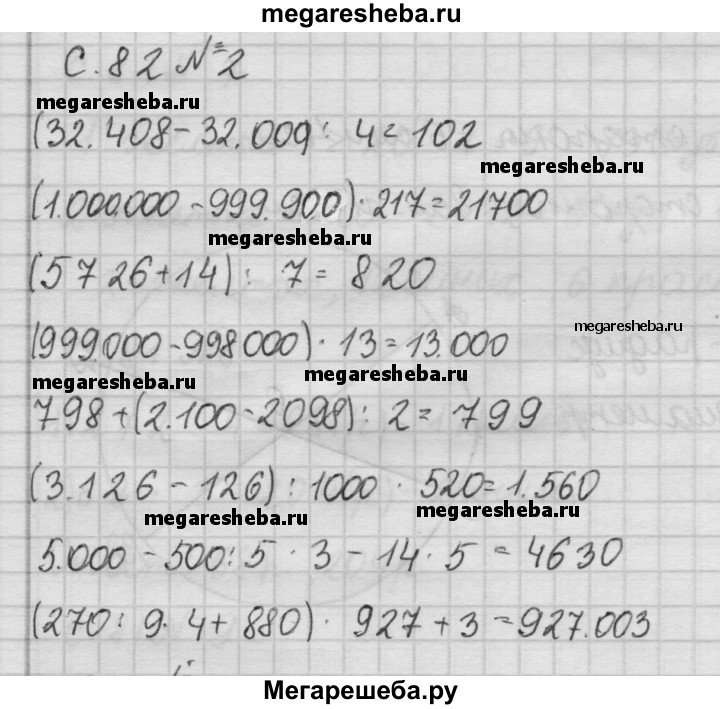 megaresheba.ru
С. 82 №2
megaresheba.ru
(32.408 - 32.009 : 4 = 102
megaresheba.ru
(1.000.000 - 999.900) · 217 = 21700
megaresheba.ru
(5726 + 14) : 7 = 820
megaresheba.ru
(999.000 - 998000) · 13 = 13.000
megaresheba.ru
megaresheba.ru
798 + (2.100 - 2098) : 2 = 799
(3.126 - 126) : 1000 · 520 = 1.560
megaresheba.ru
megaresheba.ru
5.000 - 500 : 5 · 3 - 14 · 5 = 4630
(270 : 9 · 4 + 880) · 927 + 3 = 927.003
Мегарешеба.ру